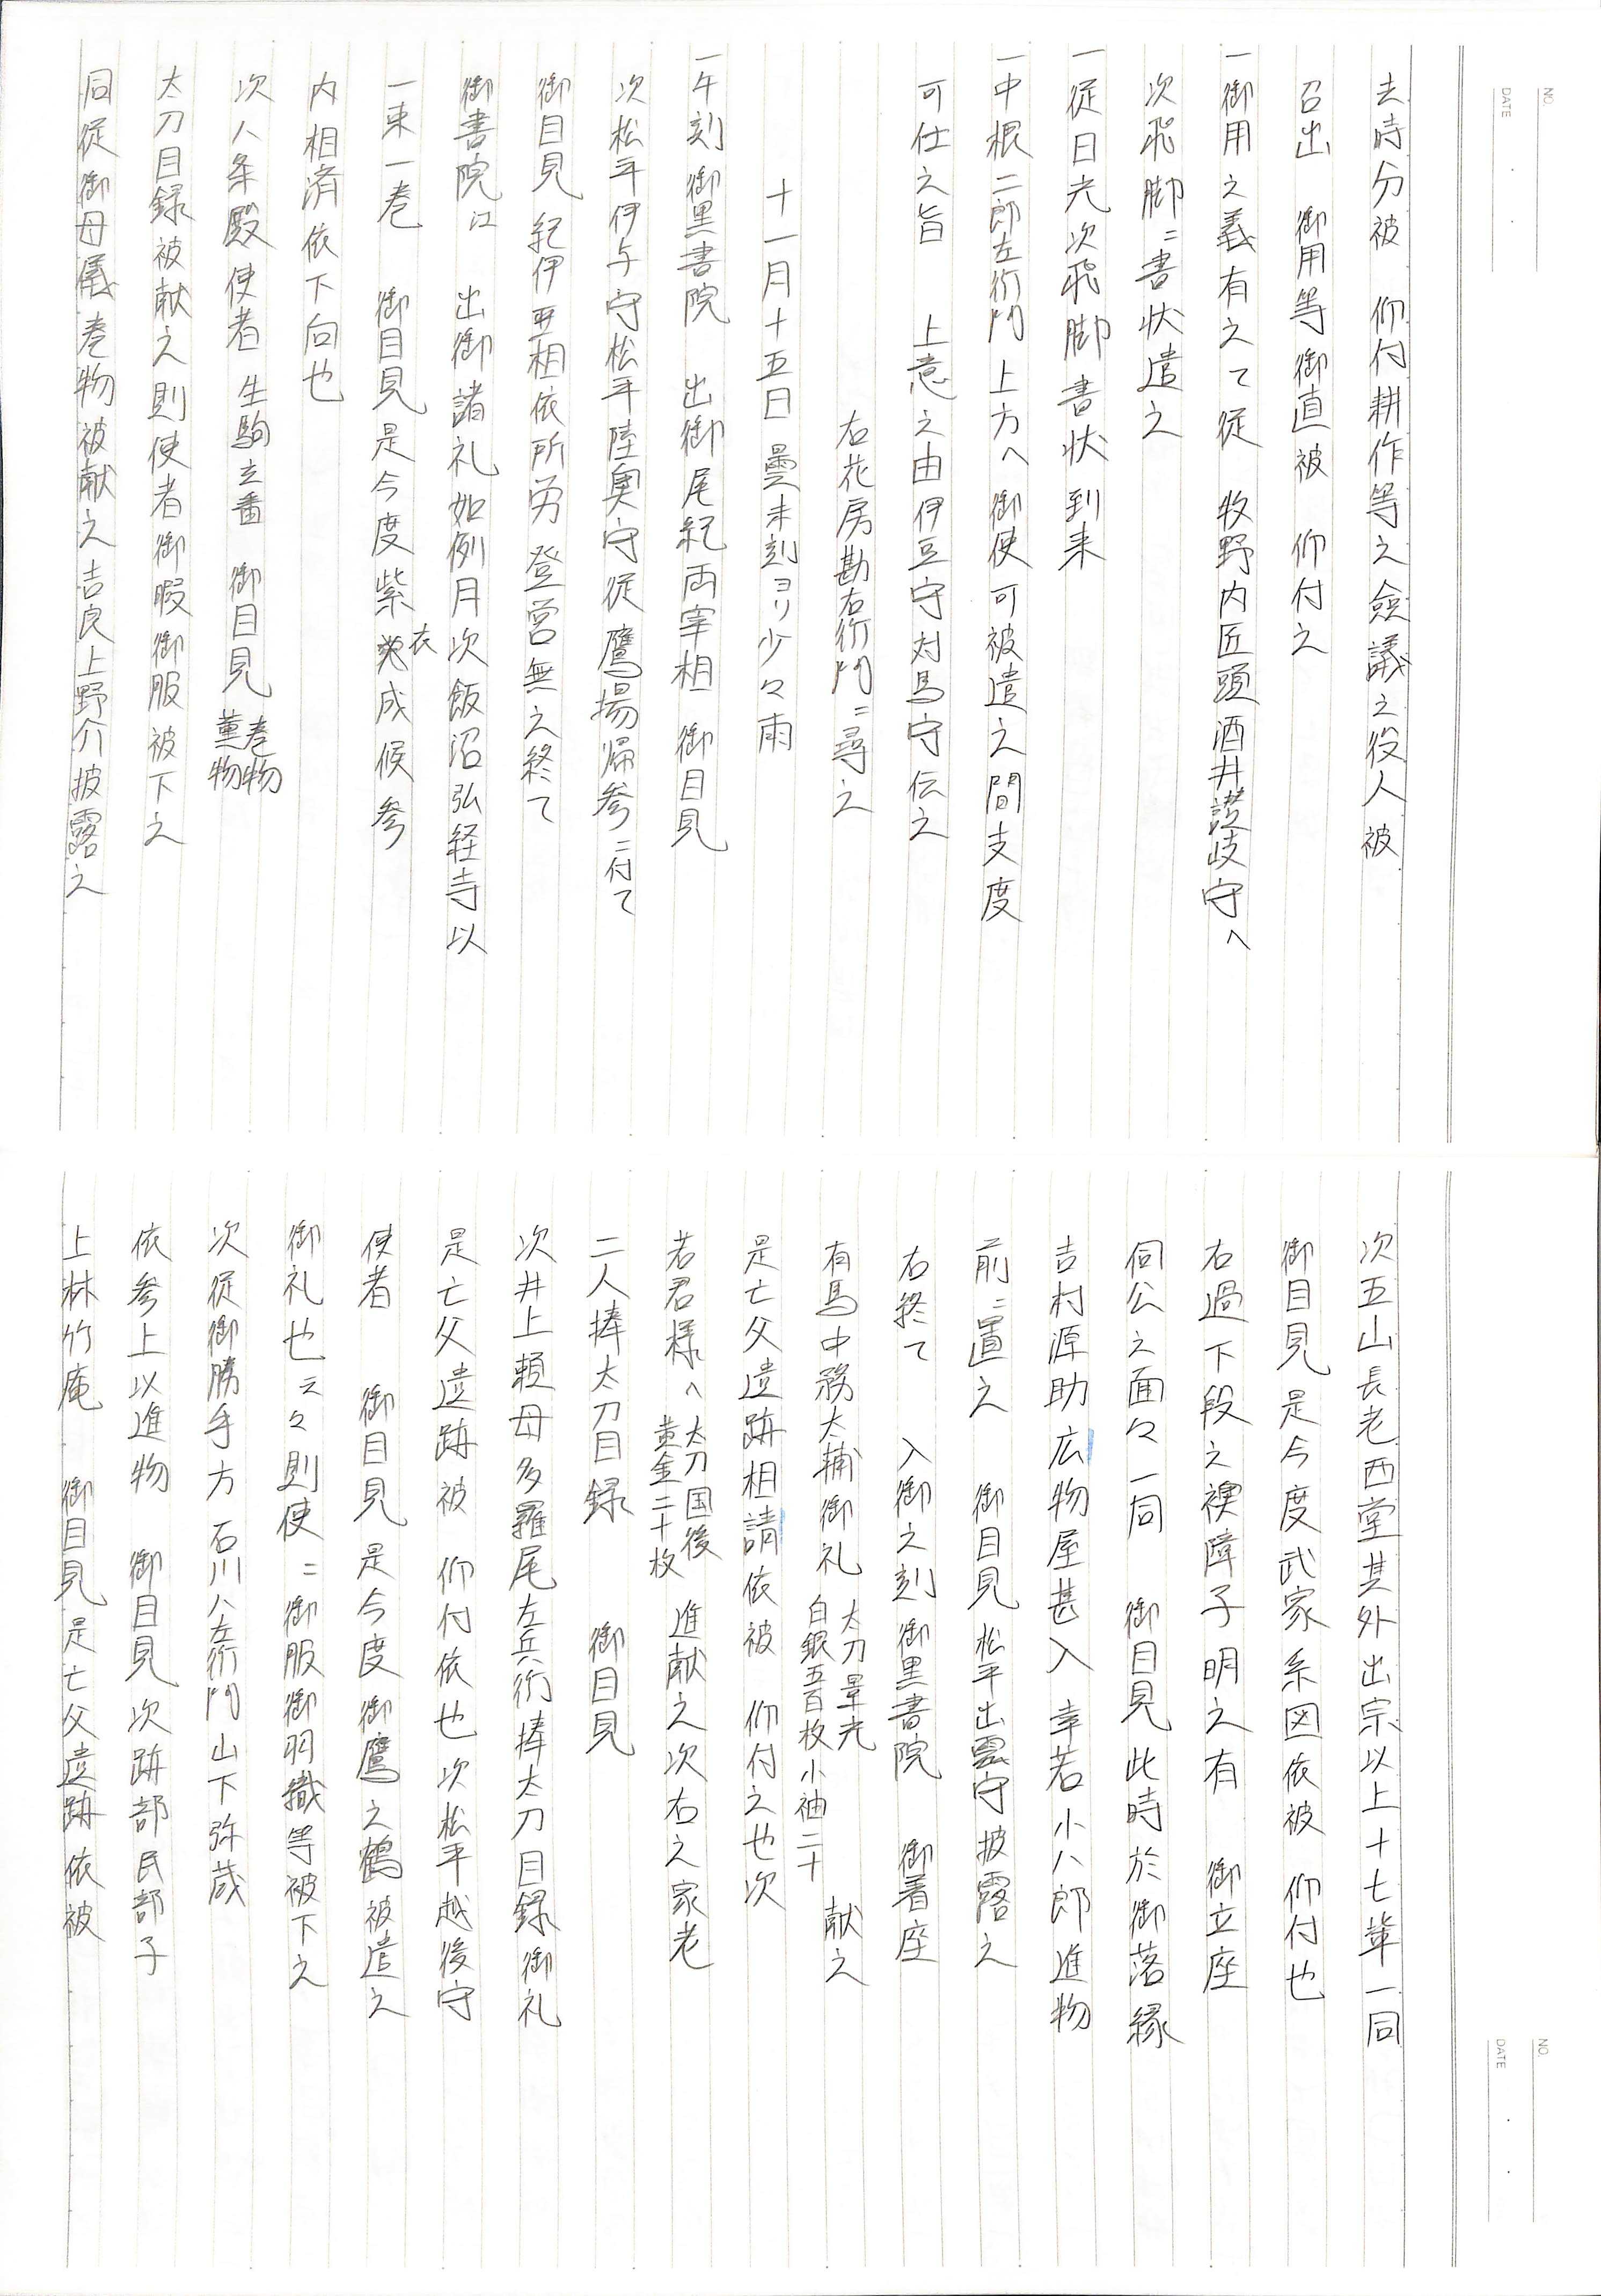 NO.
DATE
去時分被　仰付耕作等之僉議之役人被
召出　御用等御直被　仰付之
一御用之義有之て従　牧野内匠頭酒井讃岐守へ
次飛脚ニ書状遣之
一従日光次飛脚書状到来
一中根二郎左衛門上方へ御使可被遣之間支度
可仕之旨　上意之由伊豆守対馬守伝之
右花房勘右衛門ニ尋之
十一月十五日　曇未刻ヨリ少々雨
一午刻御黒書院　出御尾紀両宰相　御目見
次松平伊与守松平陸奥守従鷹場帰参ニ付て
御目見　紀伊亜相依所労　登営無之終て
御書院江　出御諸礼如例月次飯沼弘経寺以
一束一巻　御目見是今度紫衣成候参
内相済依下向也
次八条殿使者　生駒主番　御目見　巻物　薫物
太刀目録被献之則使者御暇御服被下之
同従御母儀巻物被献之吉良上野介披露之
NO.
DATE
次五山長老西堂其外出宗以上十七輩一同
御目見是今度武家系図依被　仰付也
右過下段之襖障子明之有　御立座
伺公之面々一同　御目見此時於御落縁
吉村源助広物屋甚入　幸若小八郎進物
前ニ置之　御目見松平出雲守披露之
右終て　入御之刻御黒書院　御着座
有馬中務太輔御礼　太刀景光　白銀五百枚小袖二十　献之
是亡父遺跡相請依被　仰付之也次
若君様へ　太刀国後　黄金二十枚　進献之次右之家老
二人捧太刀目録　御目見
次井上頼母多羅尾左兵衛捧太刀目録御礼
是亡父遺跡被　仰付依也次松平越後守
使者　御目見是今度御鷹之鶴被遣之
御礼也云々則使ニ御服御羽織等被下之
次従御勝手方石川八左衛門山下弥蔵
依参上以進物　御目見次跡部民部子
上林竹庵　御目見是亡父遺跡依被